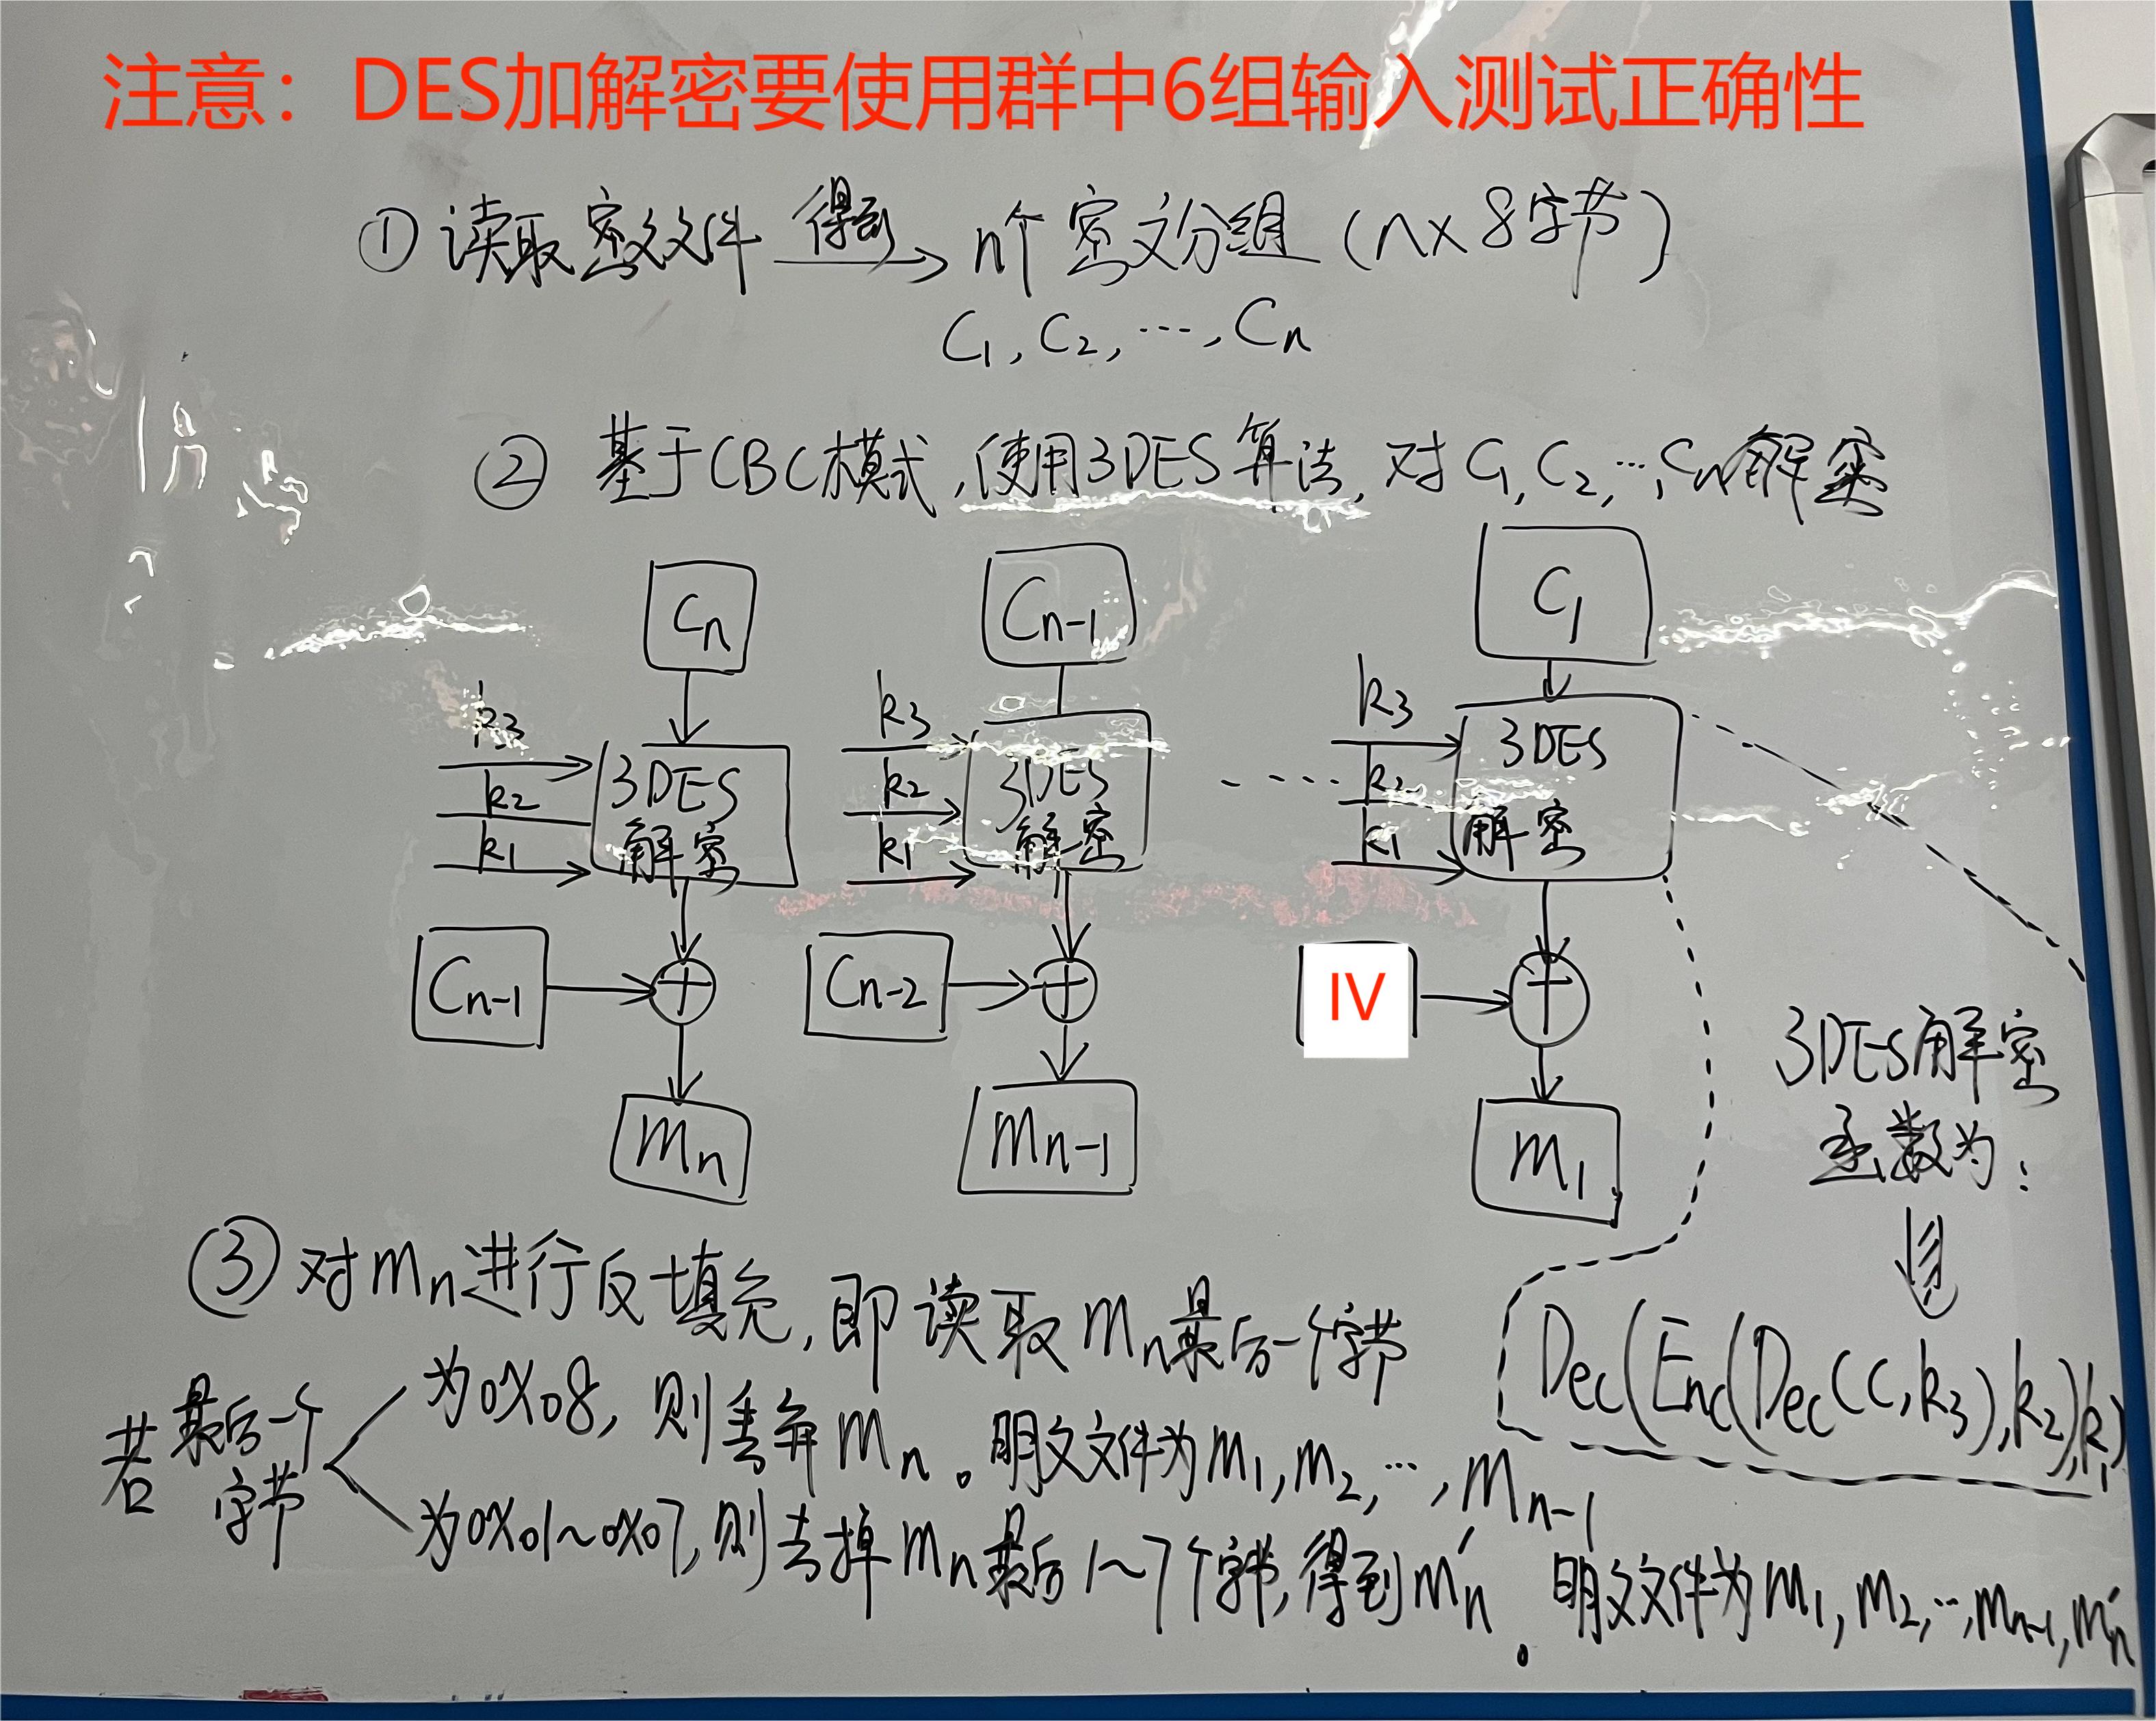 注意：DES加解密要使用群中6组输入测试正确性
① 读取密文文件 得到→ n个密文分组 (n×8字节)
C₁, C₂, …, Cₙ
② 基于CBC模式,使用3DES算法,对C₁, C₂, …, Cₙ解密
Cₙ Cₙ₋₁ C₁
k₃ k₃ k₃
3DES 3DES 3DES
k₂ k₂ k₂
解密 解密 解密
k₁ k₁ k₁
Cₙ₋₁ ⊕ Cₙ₋₂ ⊕ IV ⊕
mₙ mₙ₋₁ m₁
3DES解密
函数为:
⇓
Dec(Enc(Dec(C,k₃),k₂),k₁)
③ 对mₙ进行反填充,即读取mₙ最后一个字节
若最后一个字节
为0X08, 则丢弃mₙ。明文文件为m₁, m₂, …, mₙ₋₁
为0X01~0X07,则去掉mₙ最后1~7个字节,得到mₙ′。明文文件为m₁, m₂, …, mₙ₋₁, mₙ′